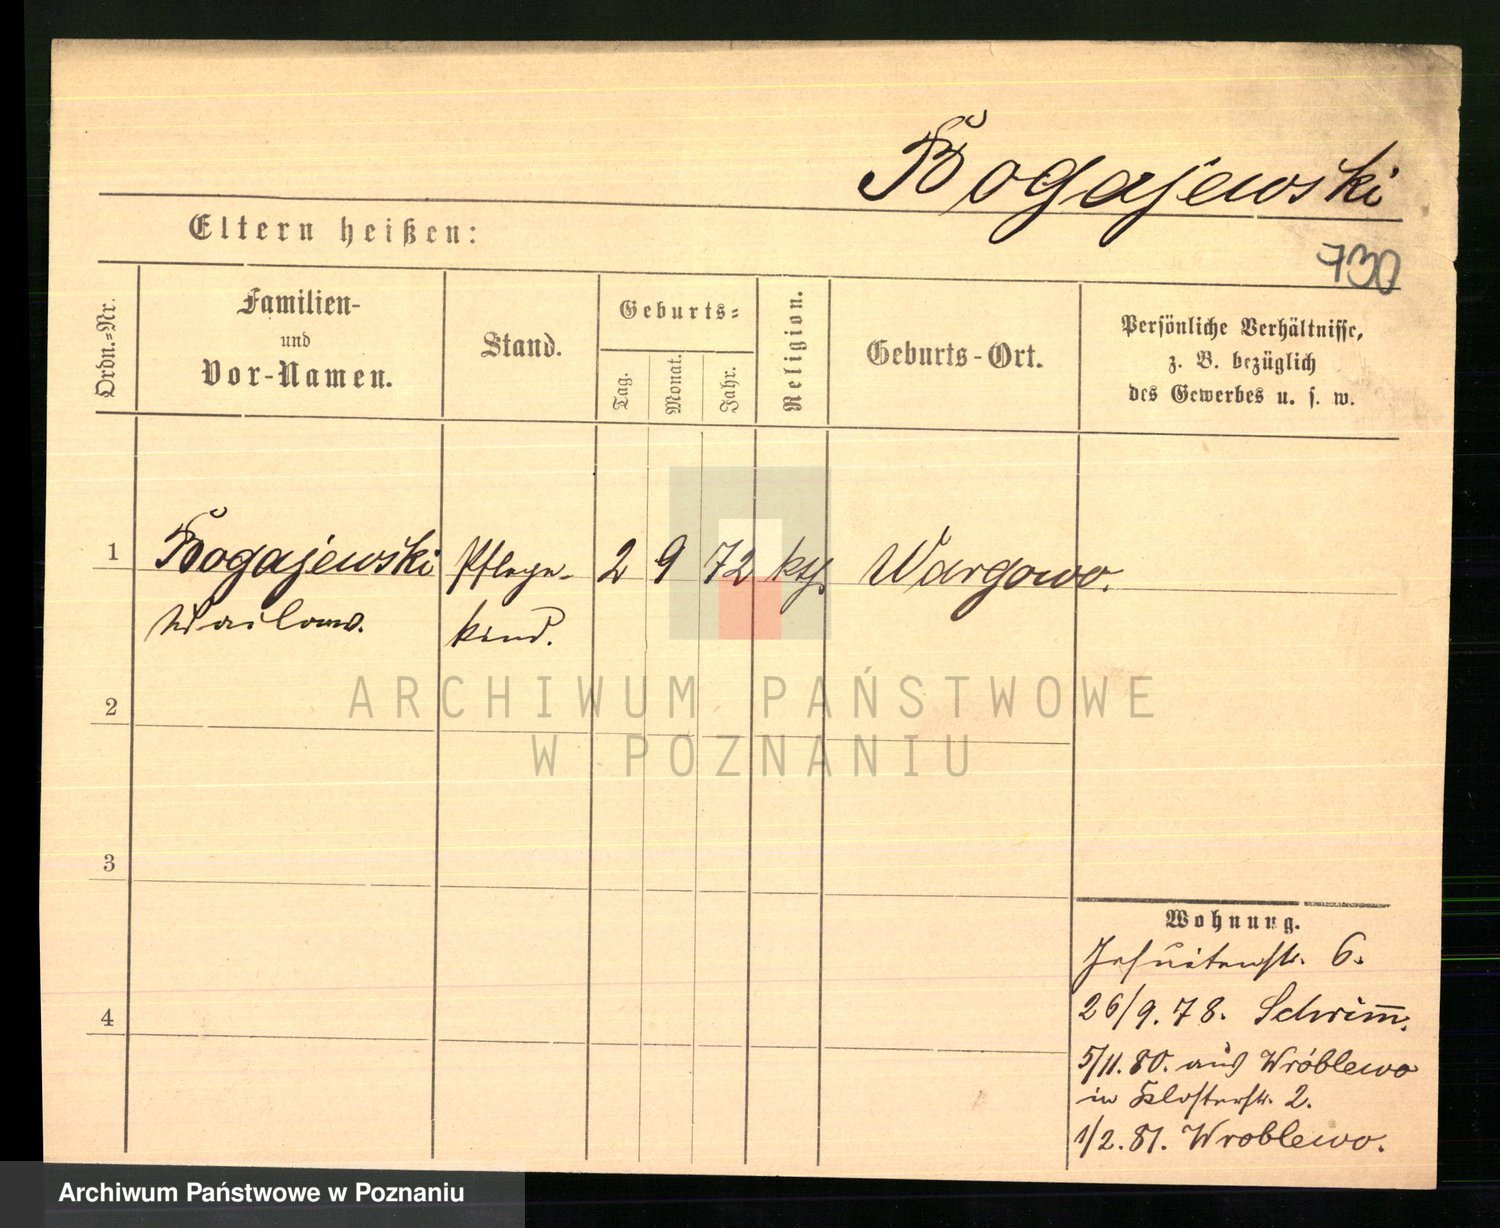 Bogajewski
Eltern heißen:
730
Ordn.-Nr.
Familien-
und
Vor-Namen.
Stand.
Geburts-
Tag.
Monat.
Jahr.
Religion.
Geburts-Ort.
Persönliche Verhältnisse,
z. B. bezüglich
des Gewerbes u. s. w.
1 Bogajewski Pflege- 2 9 72 kth. Wargowo.
kind.
ARCHIWUM PAŃSTWOWE
W POZNANIU
2
3
4
Wohnung.
Jesuitenstr. 6.
26/9.78. Schrimm.
5/11.80. aus Wróblewo
in Klosterstr. 2.
1/2.81. Wroblewo.
Archiwum Państwowe w Poznaniu